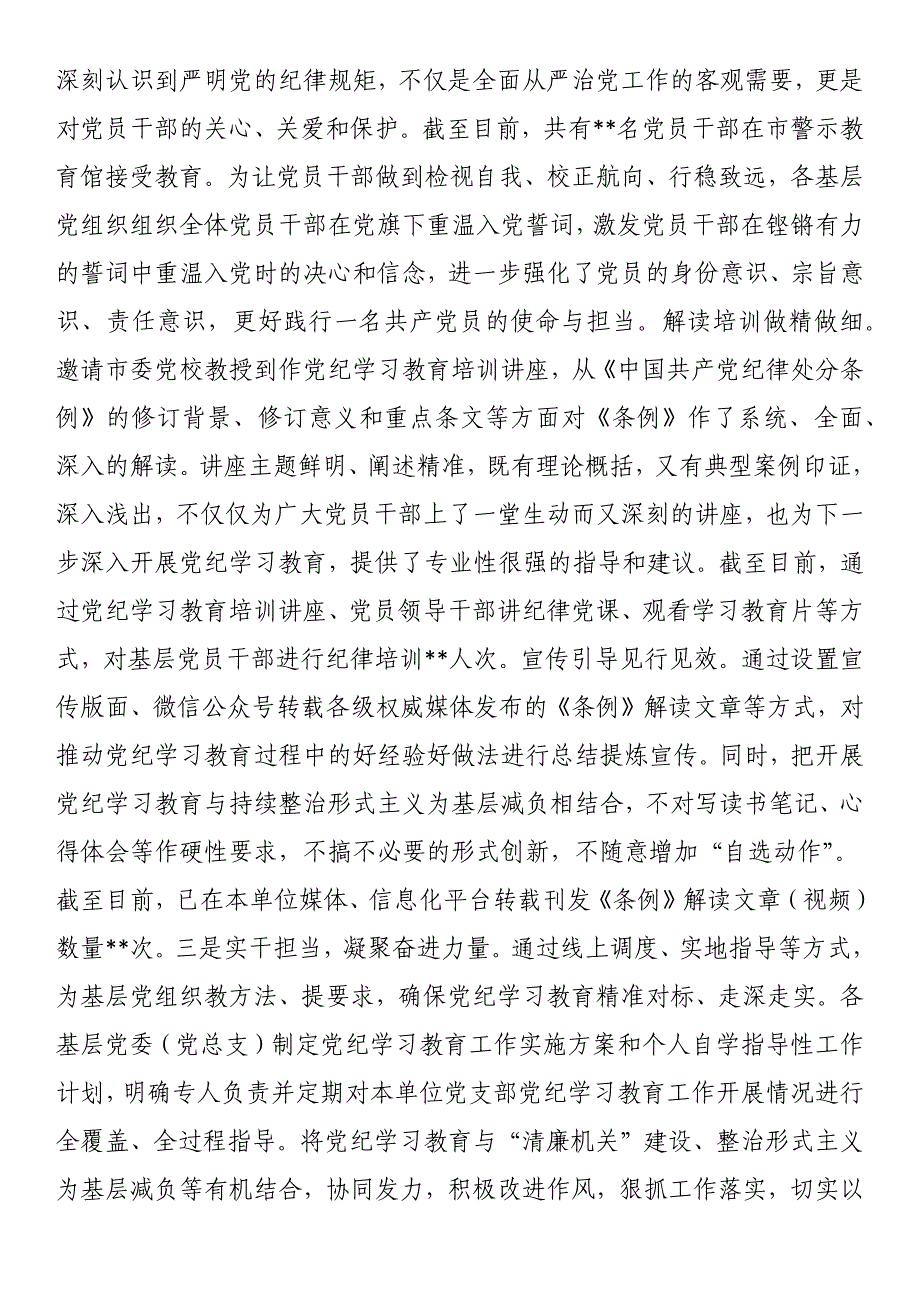 深刻认识到严明党的纪律规矩，不仅是全面从严治党工作的客观需要，更是
对党员干部的关心、关爱和保护。截至目前，共有**名党员干部在市警示教
育馆接受教育。为让党员干部做到检视自我、校正航向、行稳致远，各基层
党组织组织全体党员干部在党旗下重温入党誓词，激发党员干部在铿锵有力
的誓词中重温入党时的决心和信念，进一步强化了党员的身份意识、宗旨意
识、责任意识，更好践行一名共产党员的使命与担当。解读培训做精做细。
邀请市委党校教授到作党纪学习教育培训讲座，从《中国共产党纪律处分条
例》的修订背景、修订意义和重点条文等方面对《条例》作了系统、全面、
深入的解读。讲座主题鲜明、阐述精准，既有理论概括，又有典型案例印证，
深入浅出，不仅仅为广大党员干部上了一堂生动而又深刻的讲座，也为下一
步深入开展党纪学习教育，提供了专业性很强的指导和建议。截至目前，通
过党纪学习教育培训讲座、党员领导干部讲纪律党课、观看学习教育片等方
式，对基层党员干部进行纪律培训**人次。宣传引导见行见效。通过设置宣
传版面、微信公众号转载各级权威媒体发布的《条例》解读文章等方式，对
推动党纪学习教育过程中的好经验好做法进行总结提炼宣传。同时，把开展
党纪学习教育与持续整治形式主义为基层减负相结合，不对写读书笔记、心
得体会等作硬性要求，不搞不必要的形式创新，不随意增加“自选动作”。
截至目前，已在本单位媒体、信息化平台转载刊发《条例》解读文章（视频）
数量**次。三是实干担当，凝聚奋进力量。通过线上调度、实地指导等方式，
为基层党组织教方法、提要求，确保党纪学习教育精准对标、走深走实。各
基层党委（党总支）制定党纪学习教育工作实施方案和个人自学指导性工作
计划，明确专人负责并定期对本单位党支部党纪学习教育工作开展情况进行
全覆盖、全过程指导。将党纪学习教育与“清廉机关”建设、整治形式主义
为基层减负等有机结合，协同发力，积极改进作风，狠抓工作落实，切实以